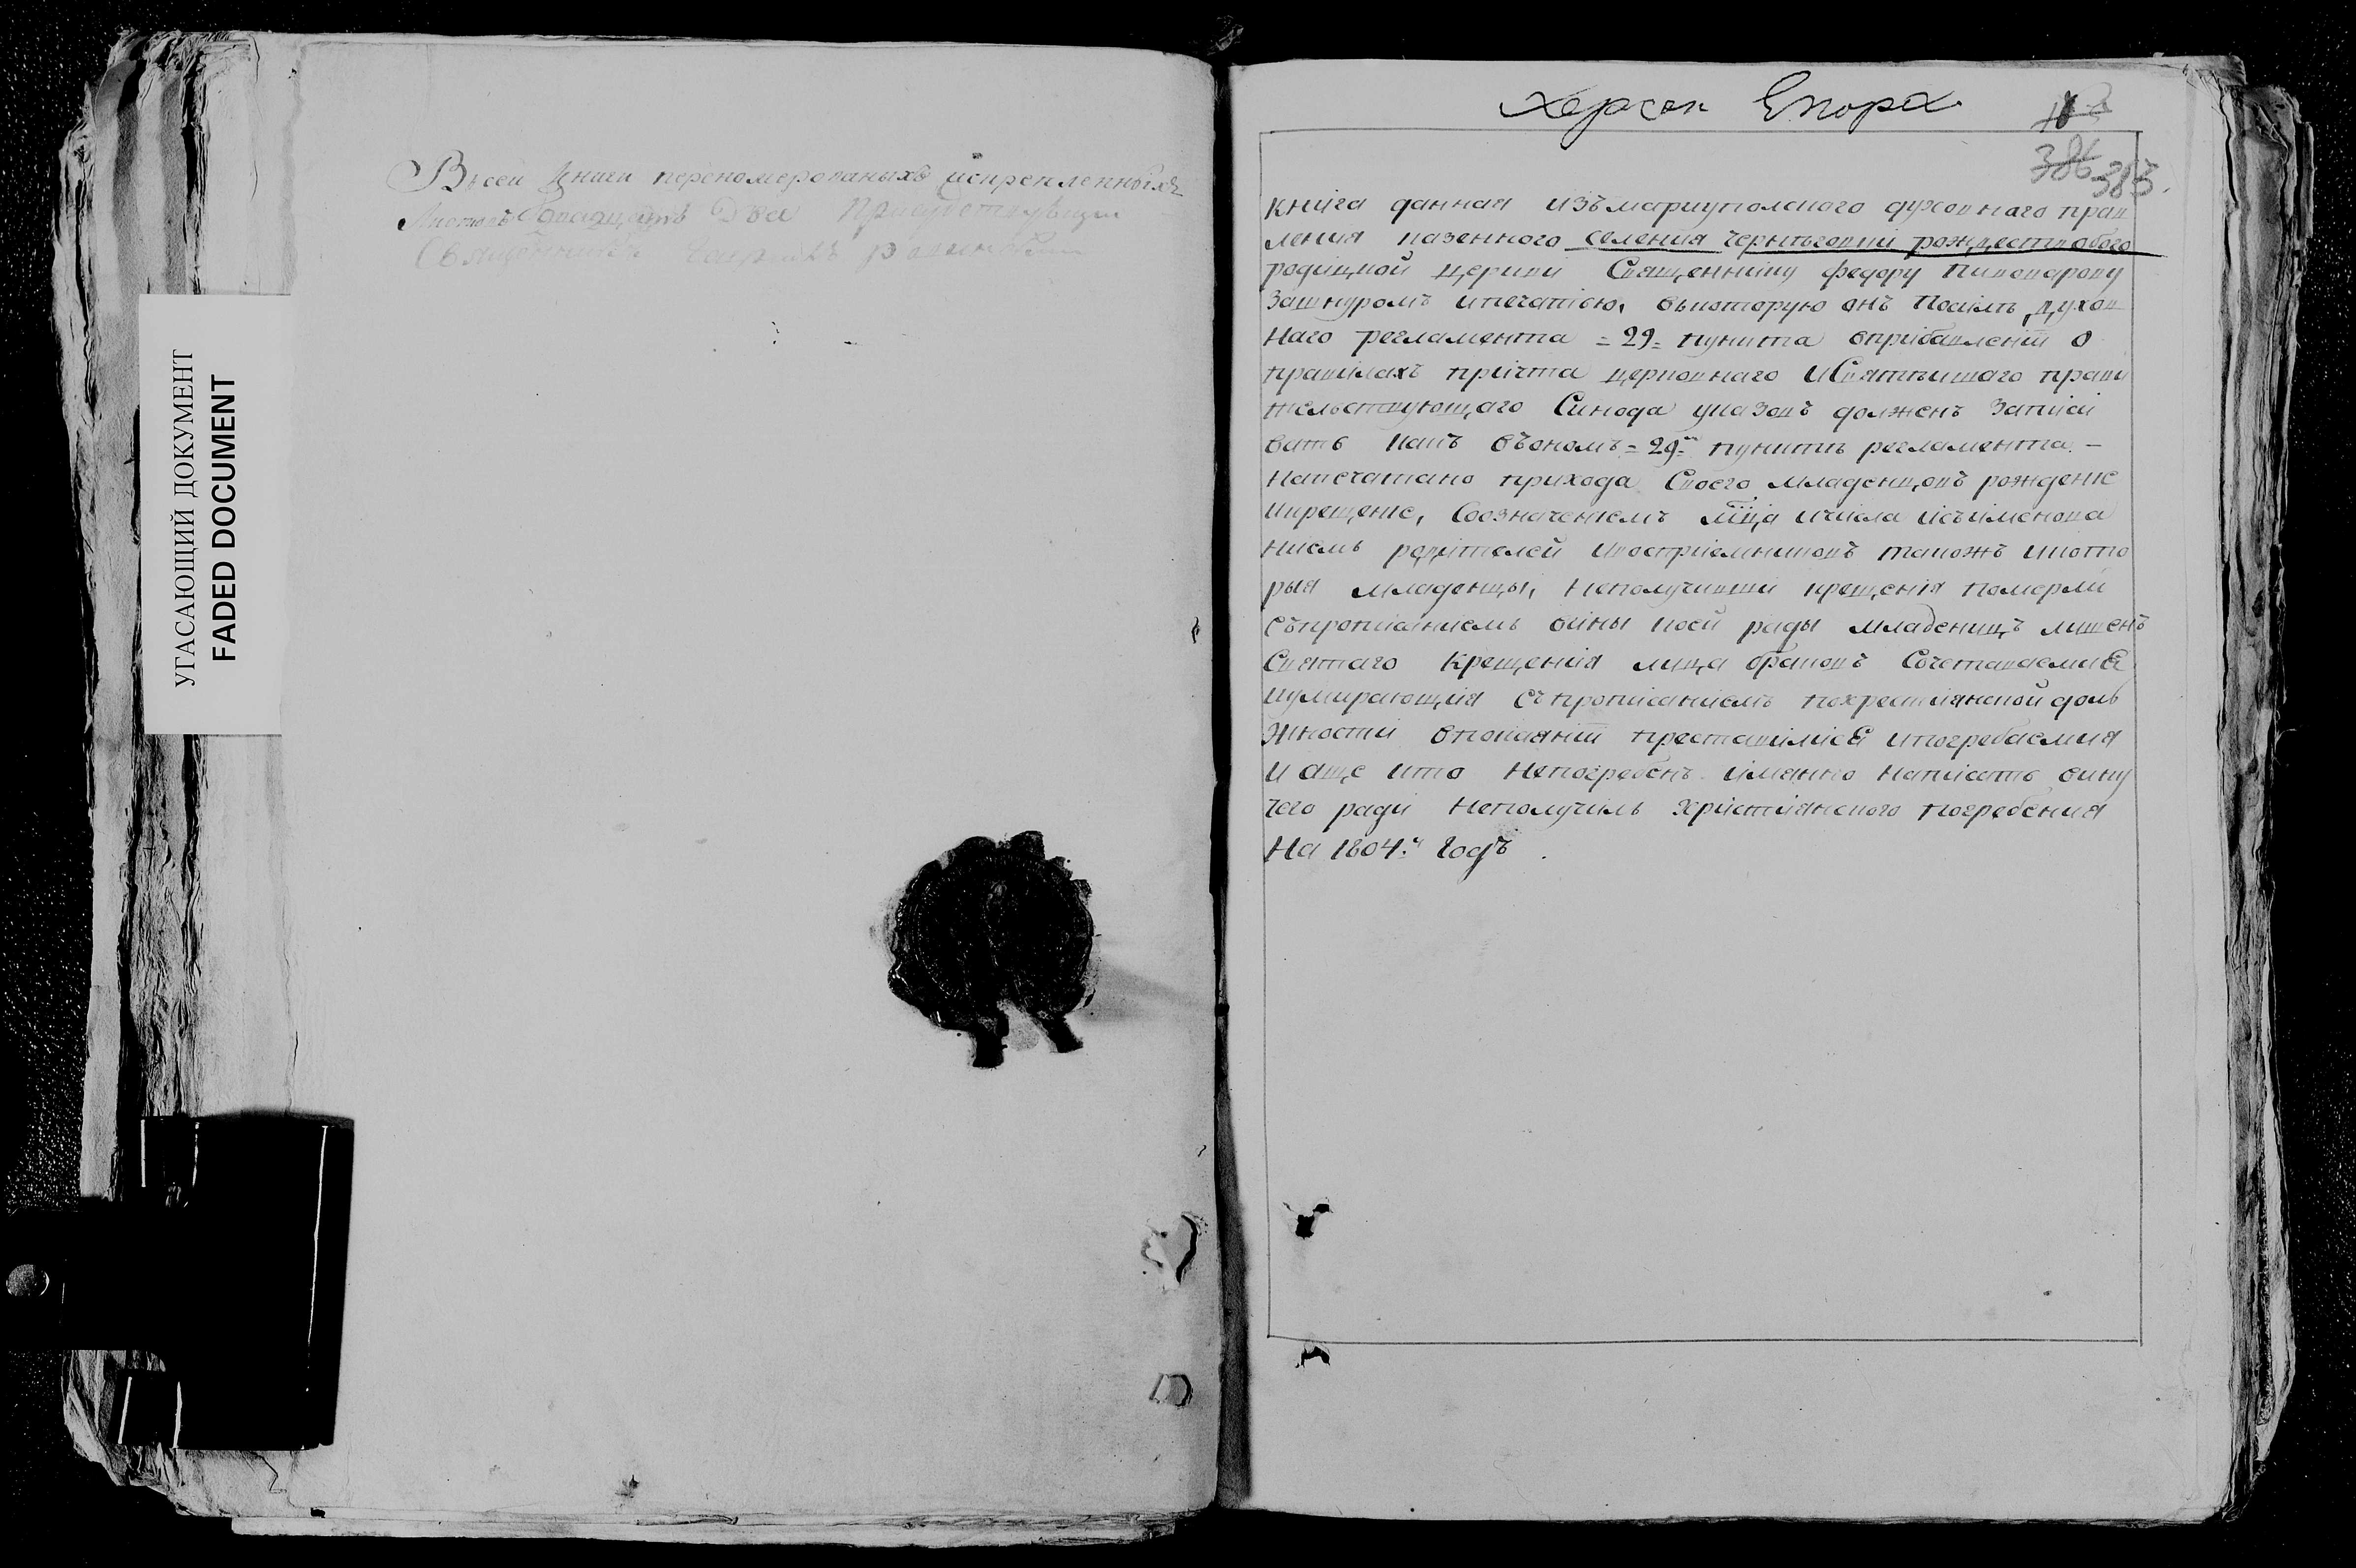 УГАСАЮЩИЙ ДОКУМЕНТ
FADED DOCUMENT
Въсей Книги переномерованыхъ искрепленныхъ
Листовъ Двадцать Два Присудствующи
Священникъ
Херсон Епорх
386 383.
книга данная изъмариуполского духовнаго прав
ления казенного селения черниговки рождествобого
родицкой церкви Священнику федору Пивоварову
зашнуромъ ипечатїю, вькоторую онъ посилѣ духов
наго регламента = 29 = пункта вприбавленїи о
правилахъ прiчта церковнаго иСвятѣишаго прави
телствующаго Синода указовъ долженъ записи
вать какъ въономъ = 29м пунктѣ регламента –
напечатано прихода Своего младенцовъ рожденїе
икрещенїе, Соозначенїемъ мца ичисла исъименова
нїемъ родителей ивоспрїемниковъ такожъ икото
рыя младенцы, неполучивши крещенїя померли
съпрописанїемъ вины коей ради младенецъ лишенъ
Святаго Крещенїя лица браковъ Сочетаваемиє
иумирающїя съпрописанїемъ похрестиянской доль
жности впокаянїи преставившїеся ипогребаемия
и аще кто непогребенъ имянно написать вину
чего ради неполучилъ христїянского погребения
На 1804.й Годъ